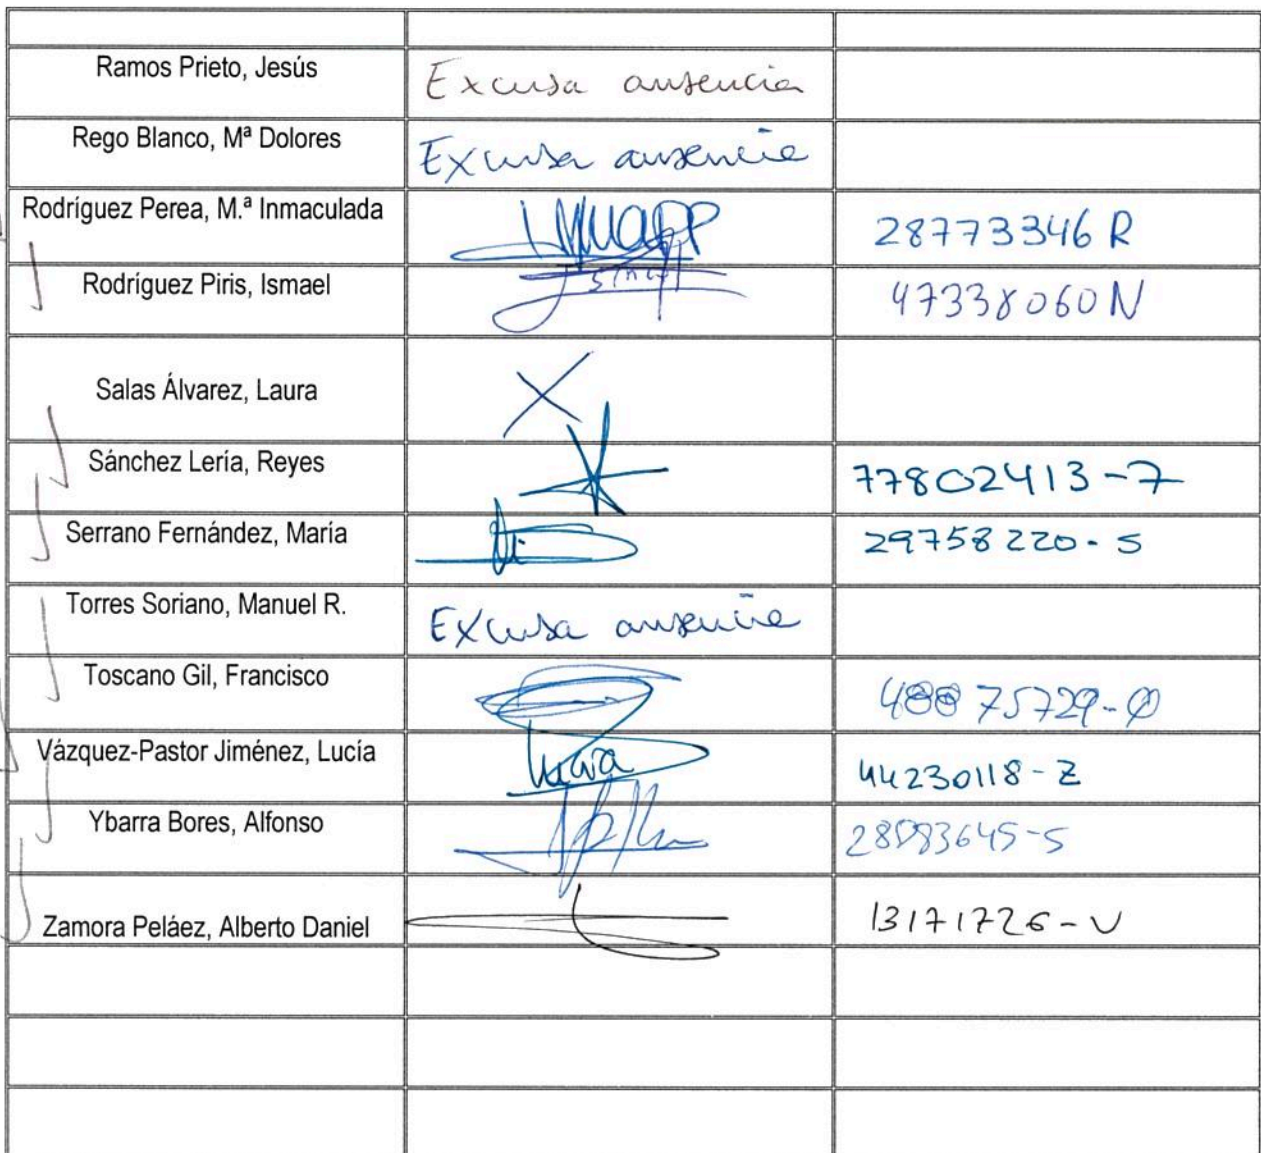 Ramos Prieto, Jesús Excusa ausencia
Rego Blanco, Mª Dolores Excusa ausencia
Rodríguez Perea, M.ª Inmaculada 28773346 R
Rodríguez Piris, Ismael 47338060N
Salas Álvarez, Laura X
Sánchez Lería, Reyes 77802413-7
Serrano Fernández, María 29758220-S
Torres Soriano, Manuel R. Excusa ausencia
Toscano Gil, Francisco
Vázquez-Pastor Jiménez, Lucía Lucía 44230118-Z
Ybarra Bores, Alfonso
Zamora Peláez, Alberto Daniel 13171726-V